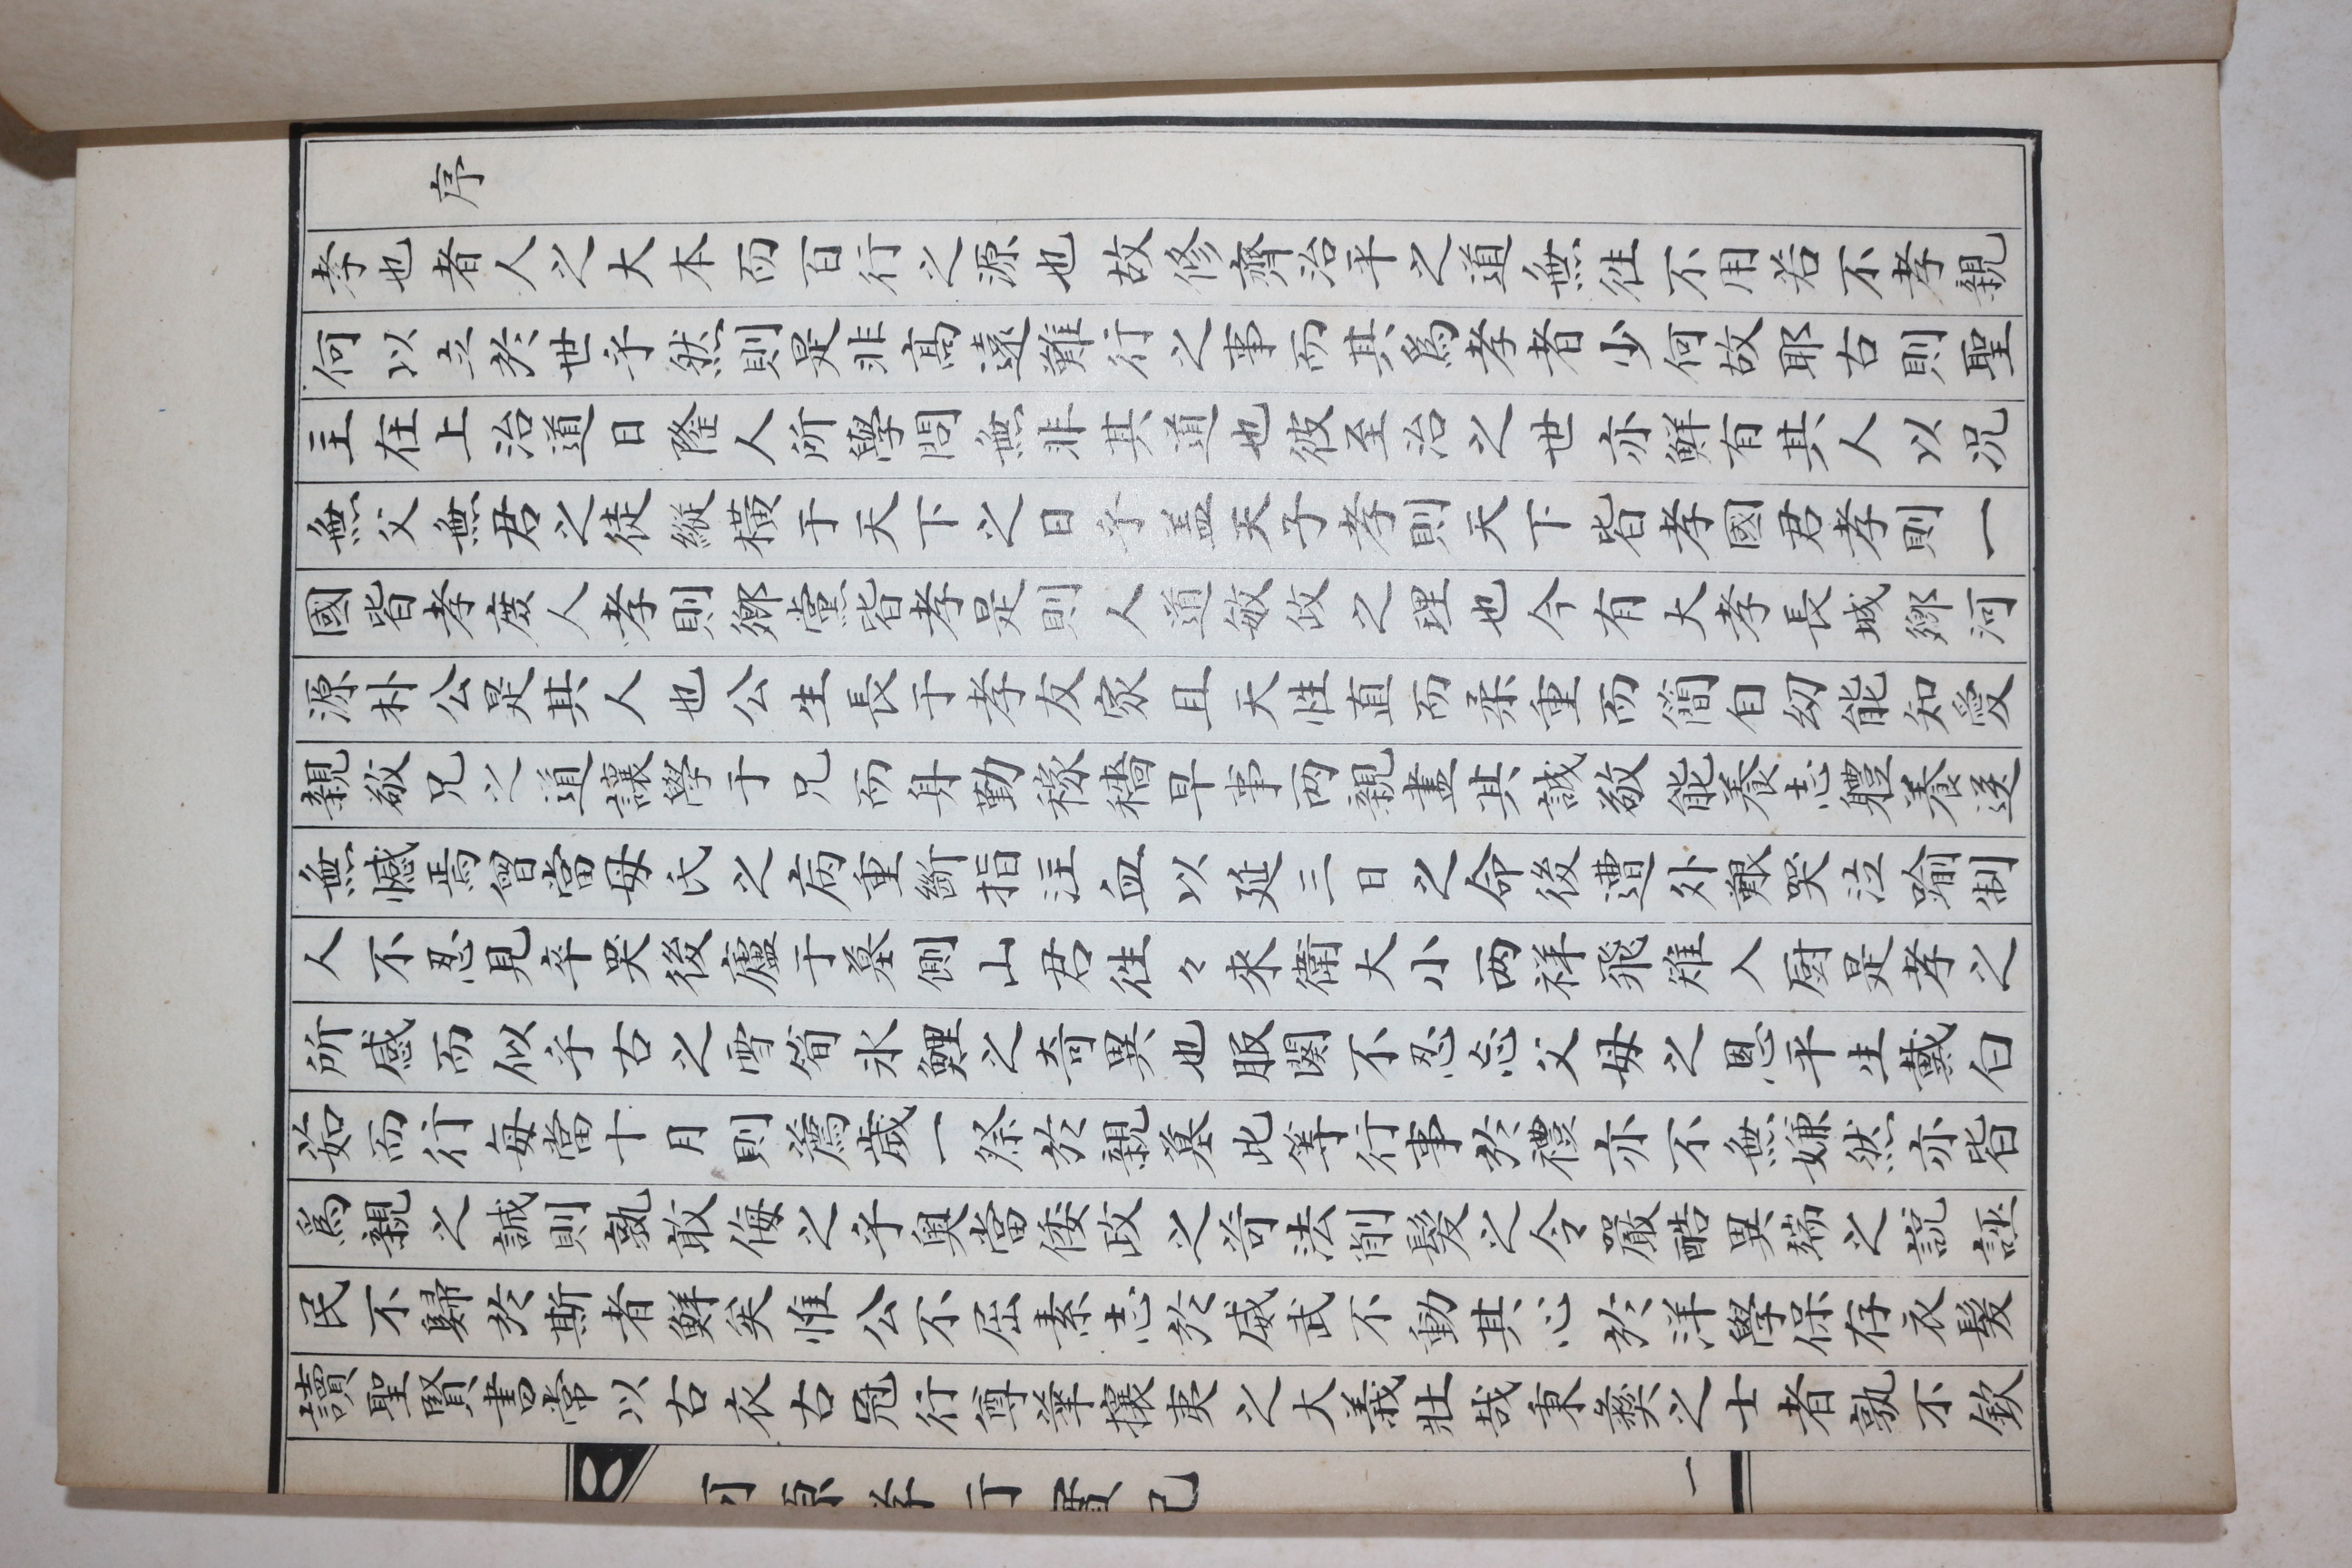 序
孝也者人之大本而百行之源也故修齊治平之道無往不用若不孝親
何以立於世乎然則是非高遠難行之事而其爲孝者少何故耶古則聖
主在上治道日隆人所學問無非其道也彼至治之世亦鮮有其人以况
無父無君之徒縱橫于天下之日乎盖天子孝則天下皆孝國君孝則一
國皆孝庶人孝則鄉黨皆孝是則人道敏政之理也今有大孝長城鄉河
源朴公是其人也公生長于孝友家且天性直而柔重而簡自幼能知愛
親敬兄之道讓學于兄而身勤稼穡早事两親盡其誠敬能養志體養送
無憾焉曾當母氏之病重斷指注血以延三日之命後遭外艱哭泣踰制
人不忍見卒哭後廬于墓側山君往々來衛大小两祥飛雉入厨是孝之
所感而似乎古之雪筍氷鯉之奇異也服闋不忍忘父母之恩平生戴白
茹而行每當十月則薦歲一祭於親墓此等行事於禮亦不無嫌然亦皆
爲親之誠則孰敢侮之乎奥當倭政之苛法削髮之令嚴酷異端之說誣
民不歸於斯者鮮矣惟公不屈素志於威武不動其心於洋學保存衣髮
讀聖賢書常以古衣古冠行尊華攘夷之大義壯哉秉彜之士者孰不欽
河源孝行實記
一